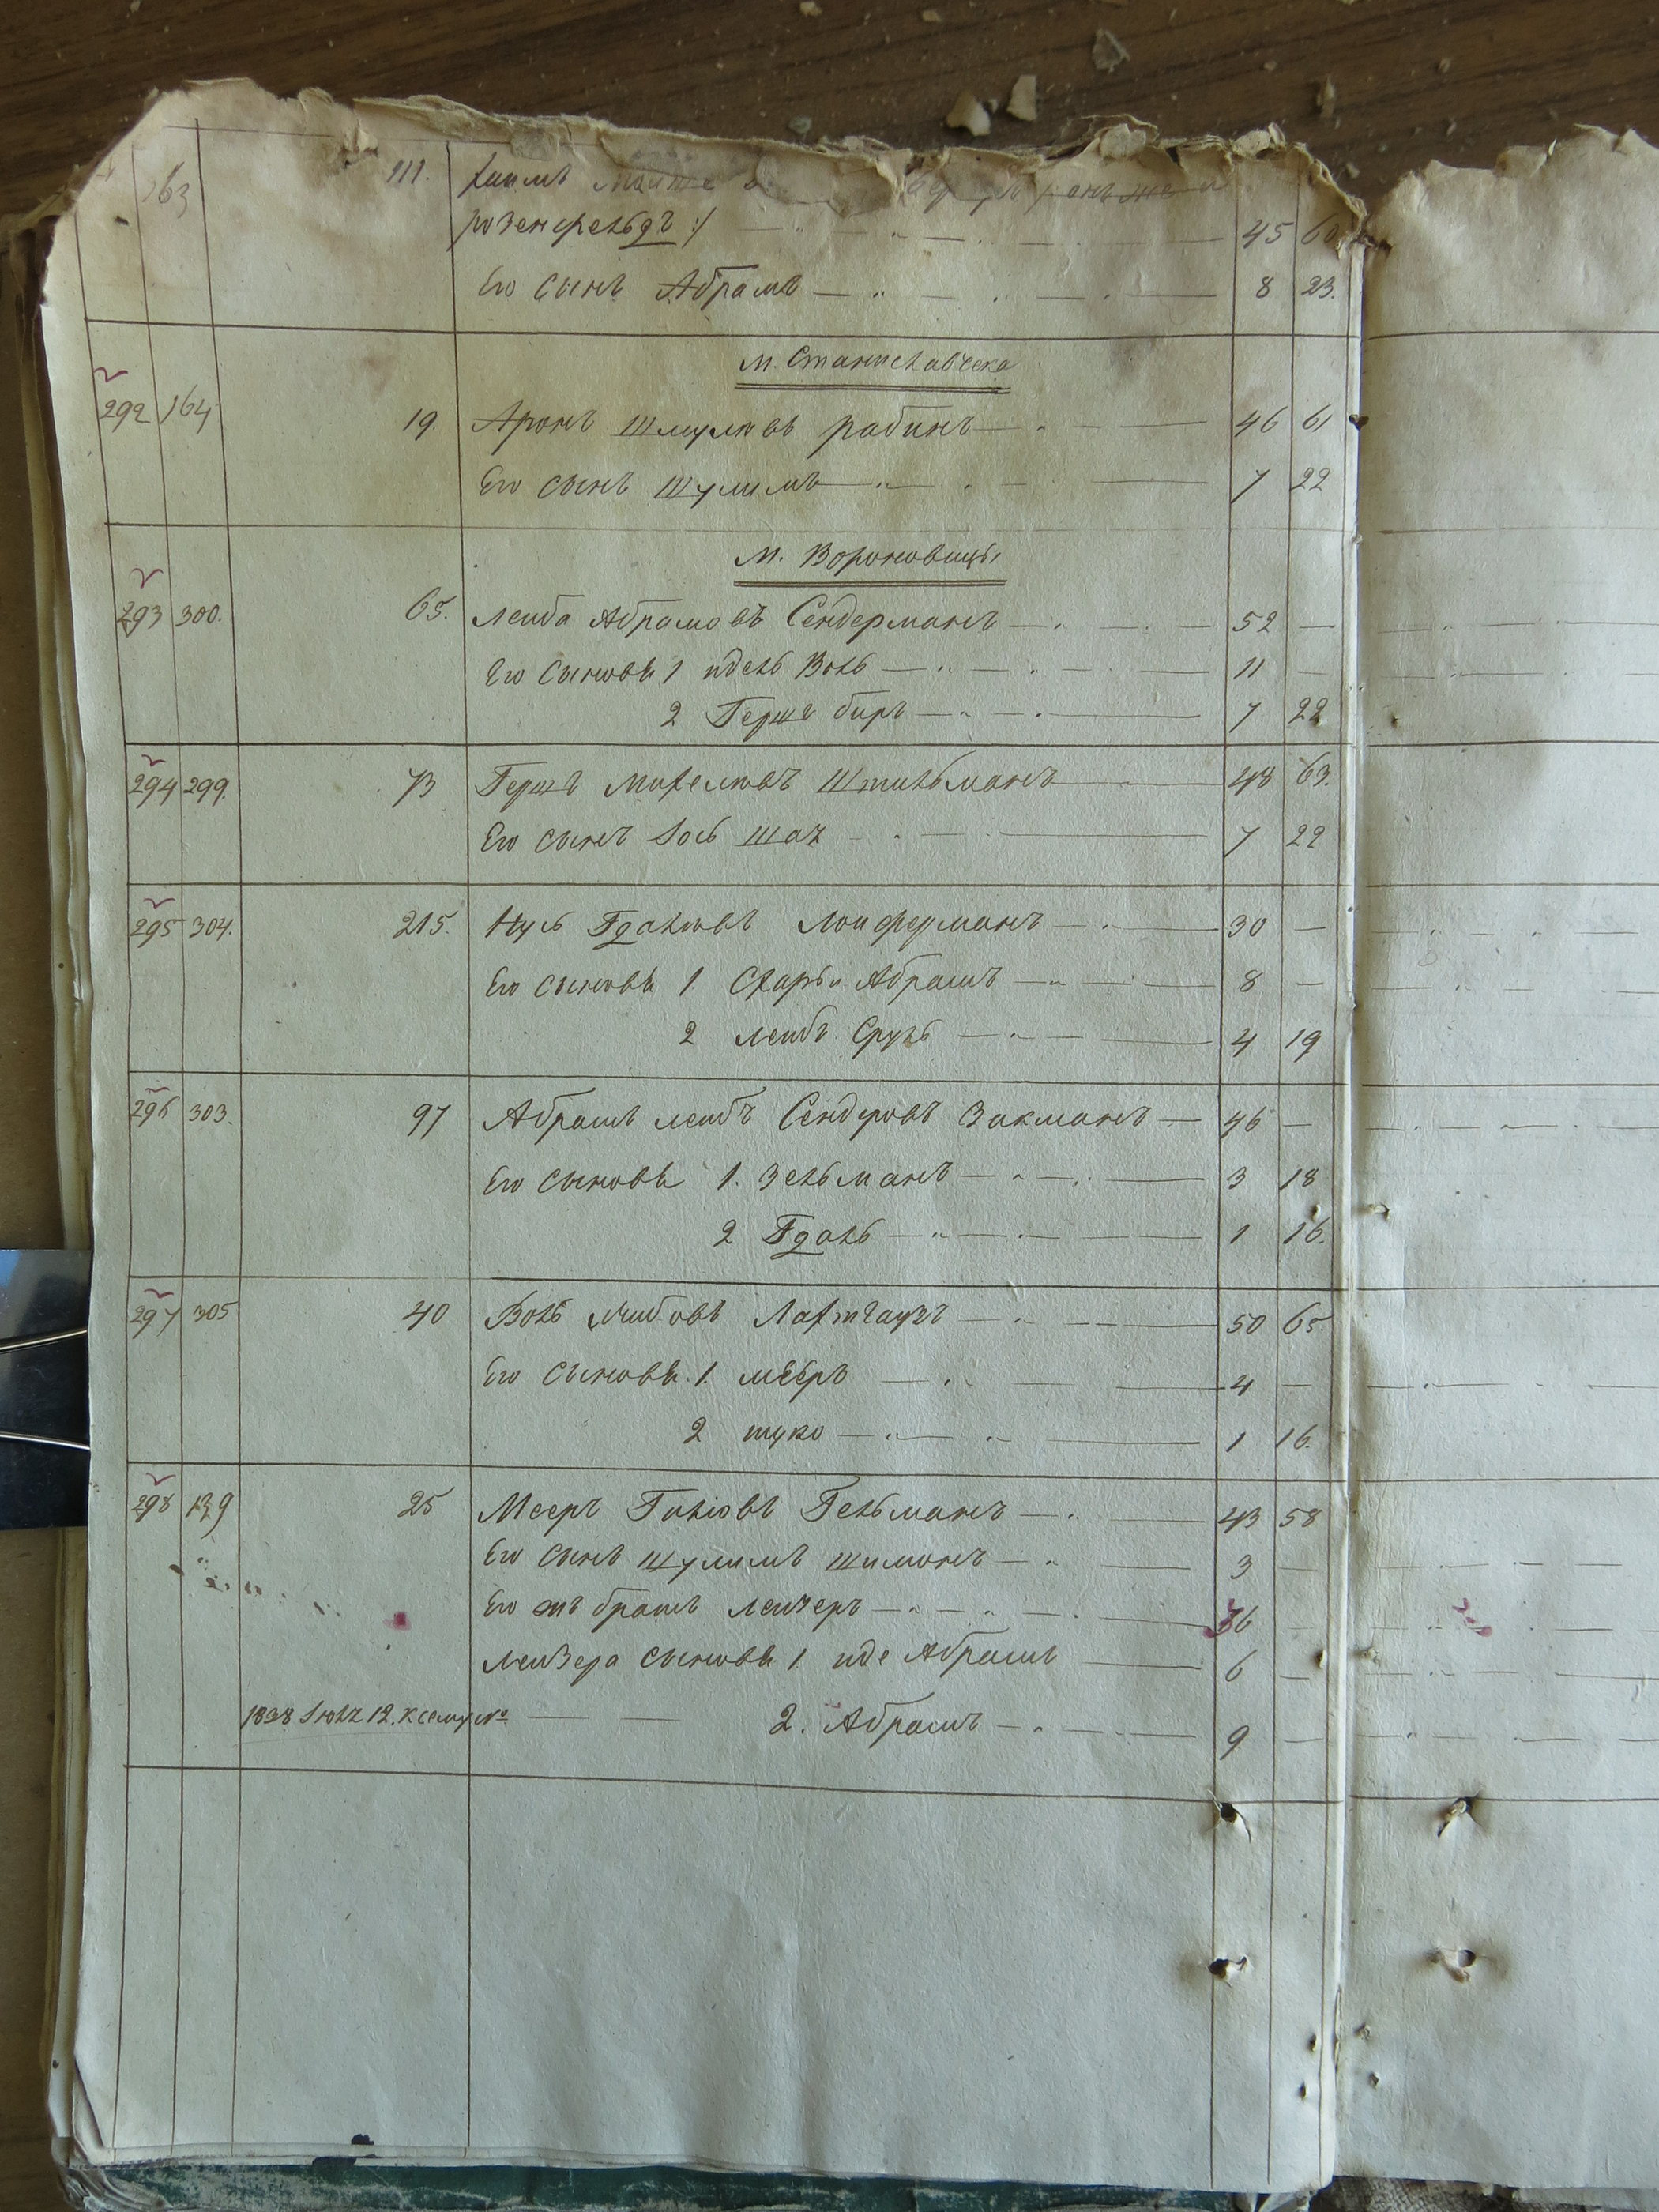 163 111. Хаимъ Мошке
розенфельдъ :/ 45 60
Его сынъ Абрамъ 8 23.
М. Станиславчека
292 164 19. Аронъ Шмулювъ рабинъ 46 61
Его сынъ Шулимъ 7 22
М. Вороновицы
293 300. 65. Лейба Абрамовъ Сендерманъ 52 —
Его сыновья 1 идель Воль 11 —
2 Гершъ беръ 7 22
294 299. 73 Гершъ Михелювъ Штильманъ 48 63.
Его сынъ Iось шаъ 7 22
295 304. 215. Нусь Гдалювъ Лойферманъ 30 —
Его сыновья 1 Схарья Абрамъ 8 —
2 лейбъ Сруль 4 19
296 303. 97 Абрамъ лейбъ Сендеровъ Закманъ 46 —
Его сыновья 1. Зельманъ 3 18
2 Гдаль 1 16.
297 305 40 Воль Лейбовъ 50 65.
Его сыновья. 1. меёръ 4 —
2 шуко 1 16.
298 139 25 Мееръ Гилiовъ Гельманъ 43 58
Его сынъ шулимъ шимонъ 3 —
Его жъ братъ лейзеръ 36
Лейзера сыновья 1. иде Абрамъ 6 —
1838 Iюля 12. 2. Абрамъ 9 —